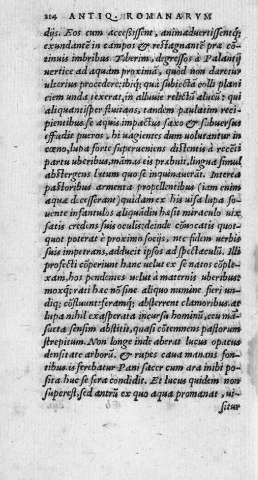 224 ANTIQ. ROMANARVM
dijs. Eos cum accessissent, animaduertissentq́;
exundantē in campos & restagnantē præ cō-
tinuis imbribus Tberim, degressos à Palantij
uertice ad aquam proximā, quòd non daretur
ulterius procedere: ibiq́; quā subiectā colli plani
ciem unda texerat, in alluuie relictū alueū: qui
aliquantisper fluitans, tandem paulatim reci-
pientibus se aquis impactus saxo & subuersus
effudit pueros, hi uagientes dum uolutantur in
cœno, lupa forte superueniens distentis à recēti
partu uberibus, māmas eis præbuit, lingua simul
abstergens lutum quo se inquinauerāt. Interea
pastoribus armenta propellentibus (iam enim
aquæ decesserant) quidam ex his uisa lupa fo-
uente infantulos aliquādiu hæsit miraculo uix
satis credens suis oculis: deinde cōuocatis quot-
quot poterat è proximo socijs, nec fidem uerbis
suis impetrans, adducit ipsos ad spectaculū. Illi
profecti cōperiunt hanc uelut ex se natos cōple-
xam, hos pendentes uelut à maternis uberibus:
moxq́; rati hac nō sine aliquo numine fieri un-
diq; cōfluunt: feramq́; absterrent clamoribus. at
lupa nihil exasperata incursu hominū, ceu mā-
sueta sensim abstitit, quasi cōtemnens pastorum
strepitum. Non longe inde aberat lucus opacus
densitate arborū, & rupes caua manans fon-
tibus. is ferebatur Pani sacer cum ara imbi po-
sita huc se fera condidit. Et lucus quidem non
superest, sed antrū ex quo aqua promanat, ui-
situr